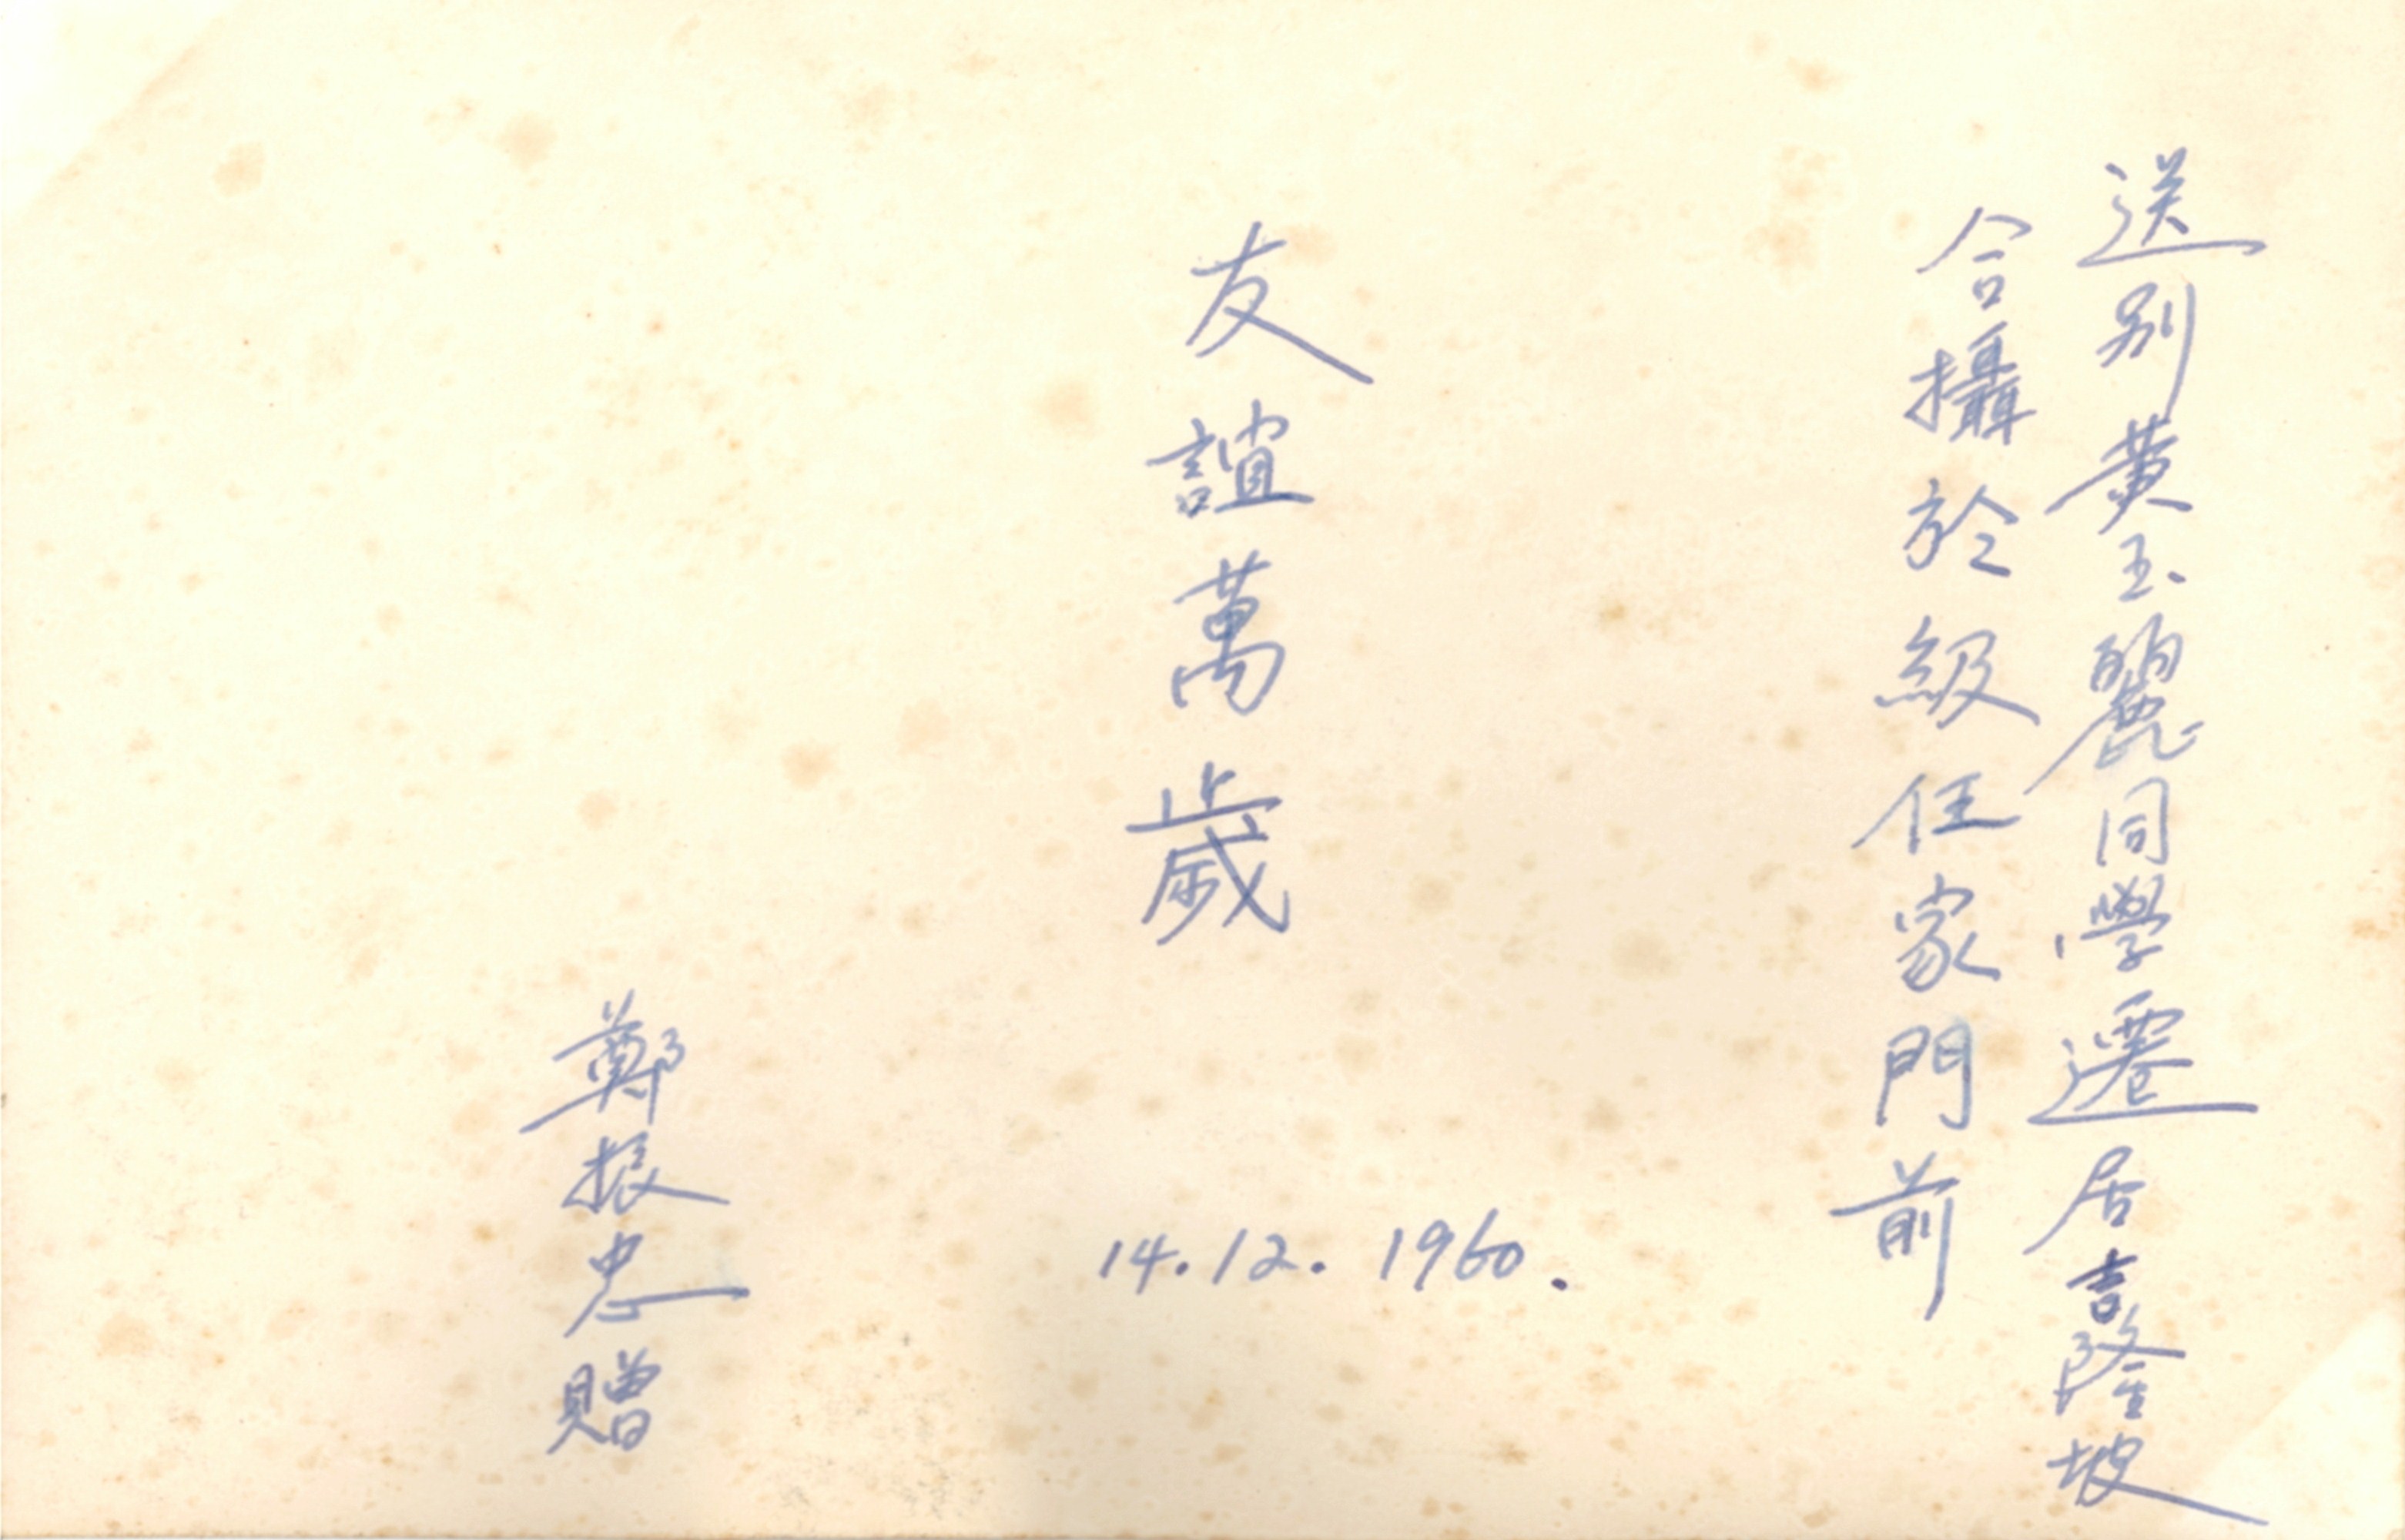 送別黃玉麗同學遷居吉隆坡
合攝於級任家門前
友誼萬歲
14.12.1960.
鄭振忠贈